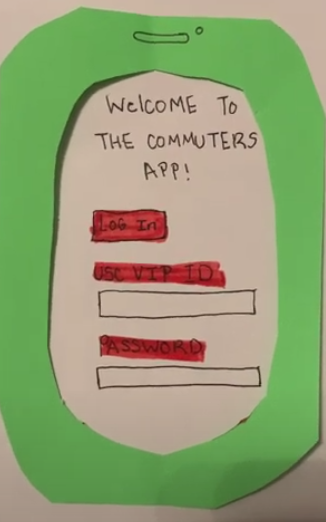 WelCOME TO
THE COMMUTERS
APP!
LOG In
USC VIP ID
PASSWORD